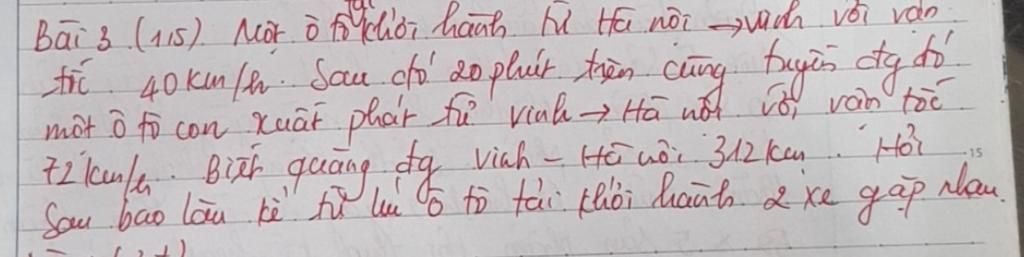 Bài 3 (1,5) Một ô tô khởi hành từ Hà nội → vinh với vận
tốc 40km/h. Sau đó 20 phút trên cùng tuyến đg đó
một ô tô con xuất phát từ vinh → Hà nội với vận tốc
72 km/h. Biết quãng đg vinh - Hà nội 312 km. Hỏi
Sau bao lâu kể từ lúc ô tô tải khởi hành 2 xe gặp nhau.